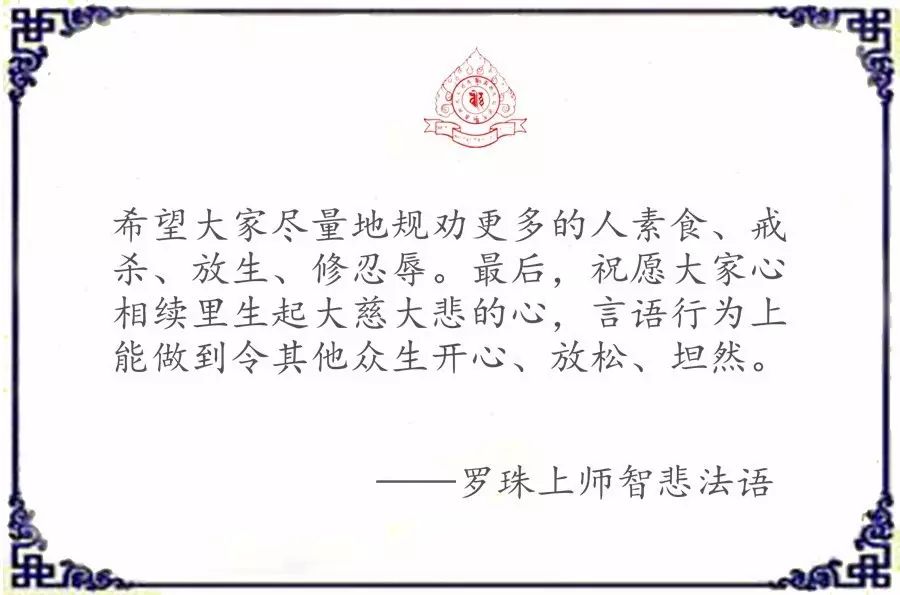 希望大家尽量地规劝更多的人素食、戒
杀、放生、修忍辱。最后，祝愿大家心
相续里生起大慈大悲的心，言语行为上
能做到令其他众生开心、放松、坦然。
——罗珠上师智悲法语